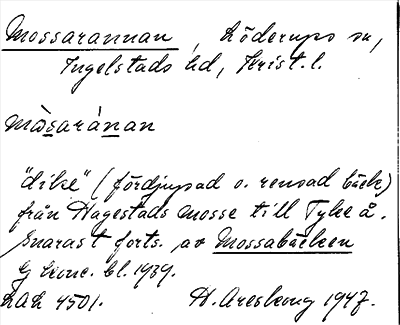 Mossarannan, Löderups sn,
Ingelstads hd, Krist. l.
måsaránan
"dike" (fördjupad o. rensad bäck)
från Hagestads mosse till Tyke å.
Snarast forts. av Mossabäcken
G konc. bl. 1939.
LAL 4501. H. Areskoug 1947.